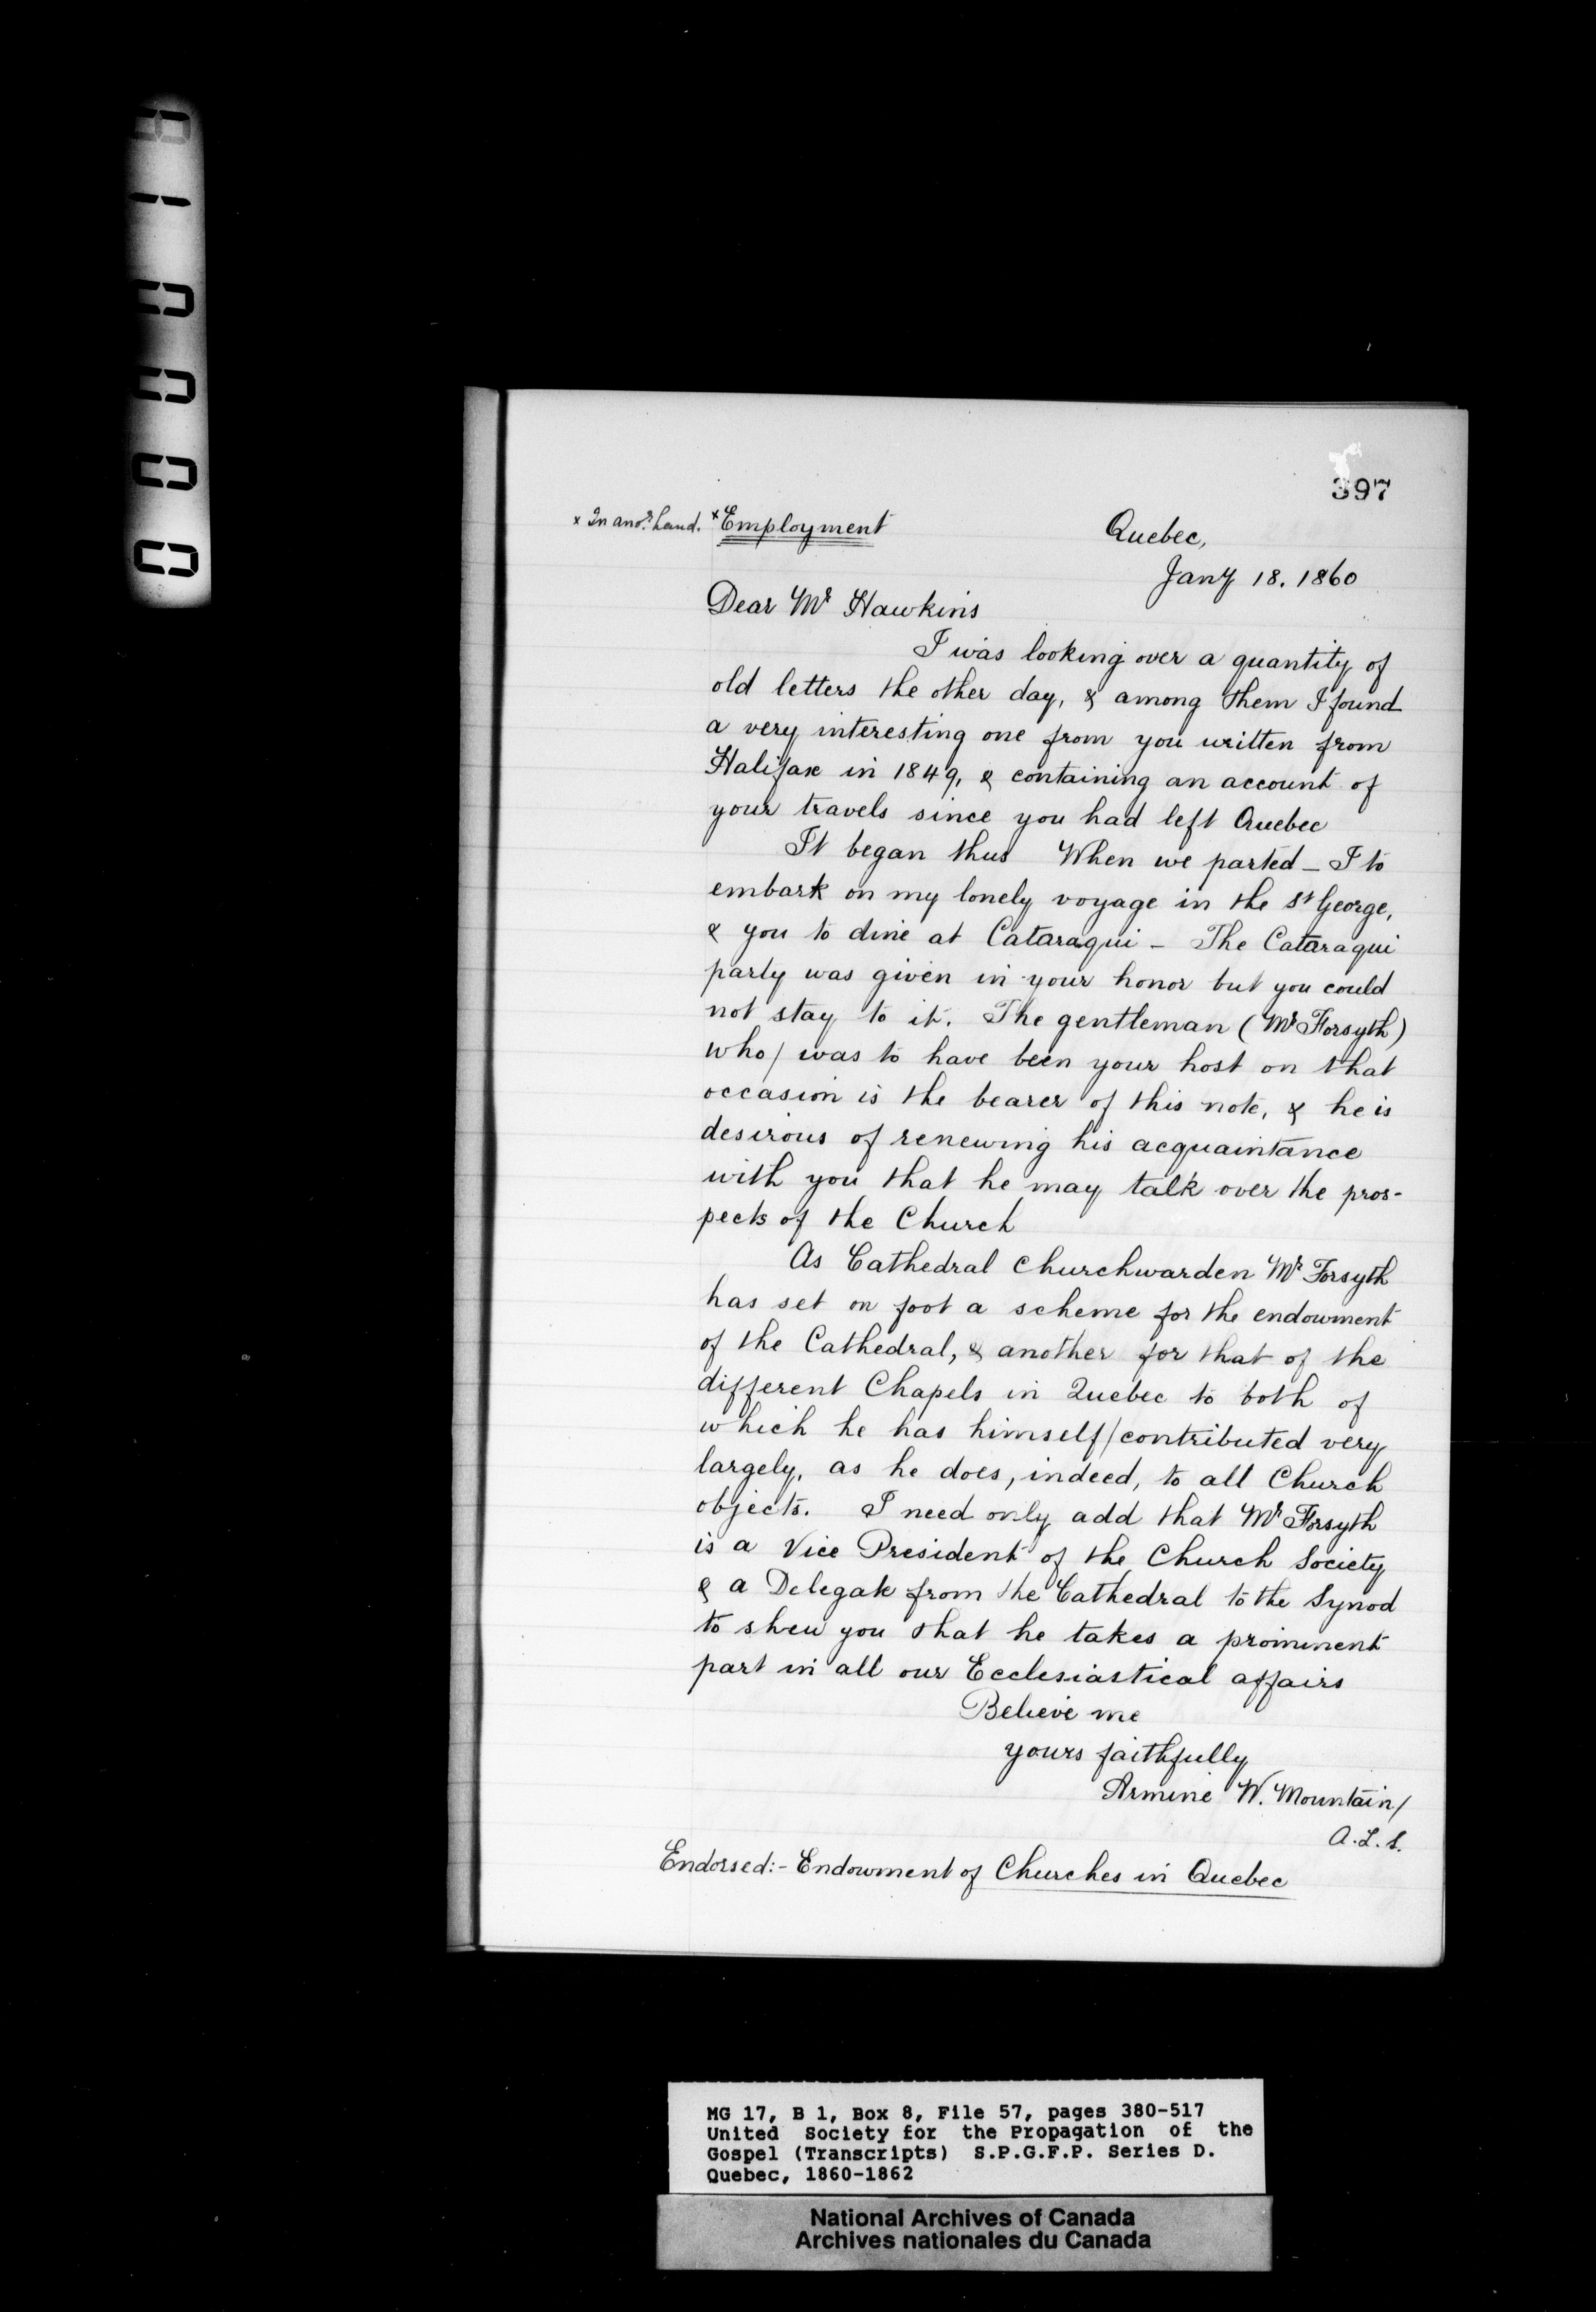 397
x In anoʳ. hand. x Employment
Quebec,
Janʸ 18. 1860
Dear Mʳ Hawkins
I was looking over a quantity of
old letters the other day, & among them I found
a very interesting one from you written from
Halifax in 1849, & containing an account of
your travels since you had left Quebec
It began thus When we parted – I to
embark on my lonely voyage in the Sᵗ George,
& you to dine at Cataraqui – The Cataraqui
party was given in your honor but you could
not stay to it. The gentleman (Mʳ Forsyth)
who/ was to have been your host on that
occasion is the bearer of this note, & he is
desirous of renewing his acquaintance
with you that he may talk over the pros-
pects of the Church
As Cathedral Churchwarden Mʳ Forsyth
has set on foot a scheme for the endowment
of the Cathedral, & another for that of the
different Chapels in Quebec to both of
which he has himself/contributed very
largely, as he does, indeed, to all Church
objects. I need only add that Mʳ Forsyth
is a Vice President of the Church Society
& a Delegate from the Cathedral to the Synod
to shew you that he takes a prominent
part in all our Ecclesiastical affairs
Believe me
yours faithfully
Armine W. Mountain/
A.L.S.
Endorsed:- Endowment of Churches in Quebec
MG 17, B 1, Box 8, File 57, pages 380-517
United Society for the Propagation of the
Gospel (Transcripts) S.P.G.F.P. Series D.
Quebec, 1860-1862
National Archives of Canada
Archives nationales du Canada